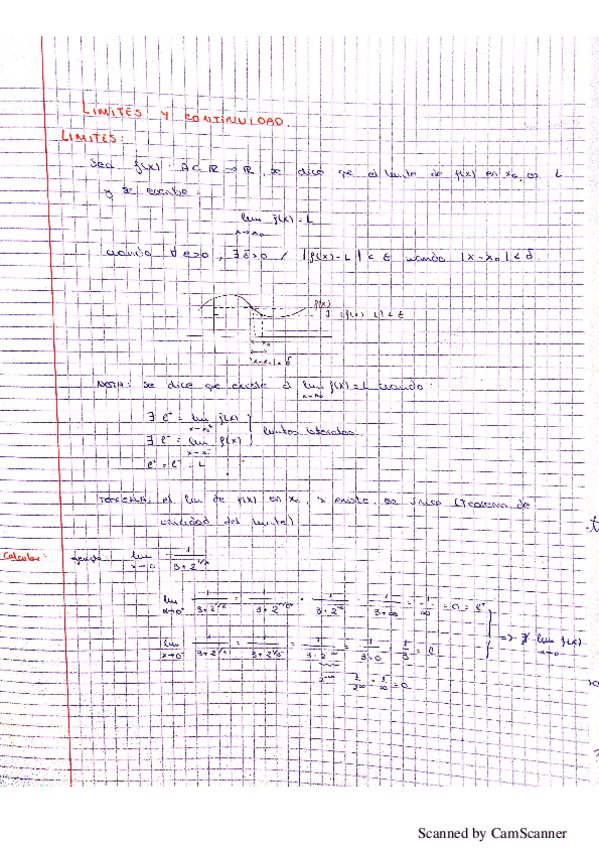 LIMITES Y CONTINUIDAD.
LIMITES:
Sea f(x): A⊂ℝ→ℝ, se dice que el límite de f(x) en x₀, es L
y se escribe:
lim f(x) = L
x→x₀
cuando ∀ε>0, ∃δ>0 / |f(x)-L| < ε cuando |x-x₀| < δ
f(x)
|f(x)-L| < ε
NOTA: Se dice que existe el lim f(x) = L cuando:
x→x₀
∃ l⁺ = lim f(x)
∃ l⁻ = lim f(x)
límites laterales
l⁺ = l⁻ = L
TEOREMA: el lim de f(x) en x₀, si existe, es único (Teorema de
unicidad del límite)
Calcular:
lim 1/(3+2^(1/x))
x→0
lim 1/(3+2^(1/x)) = 1/(3+2^(1/0⁺)) = 1/(3+2^∞) = 1/(3+∞) = 1/∞ = 0 = l⁺
x→0⁺
⇒ ∄ lim f(x)
x→0
lim 1/(3+2^(1/x)) = 1/(3+2^(1/0⁻)) = 1/(3+2^(-∞)) = 1/(3+0) = 1/3 = l⁻
x→0⁻
2^(-∞) = 1/2^∞ = 1/∞ = 0
Scanned by CamScanner